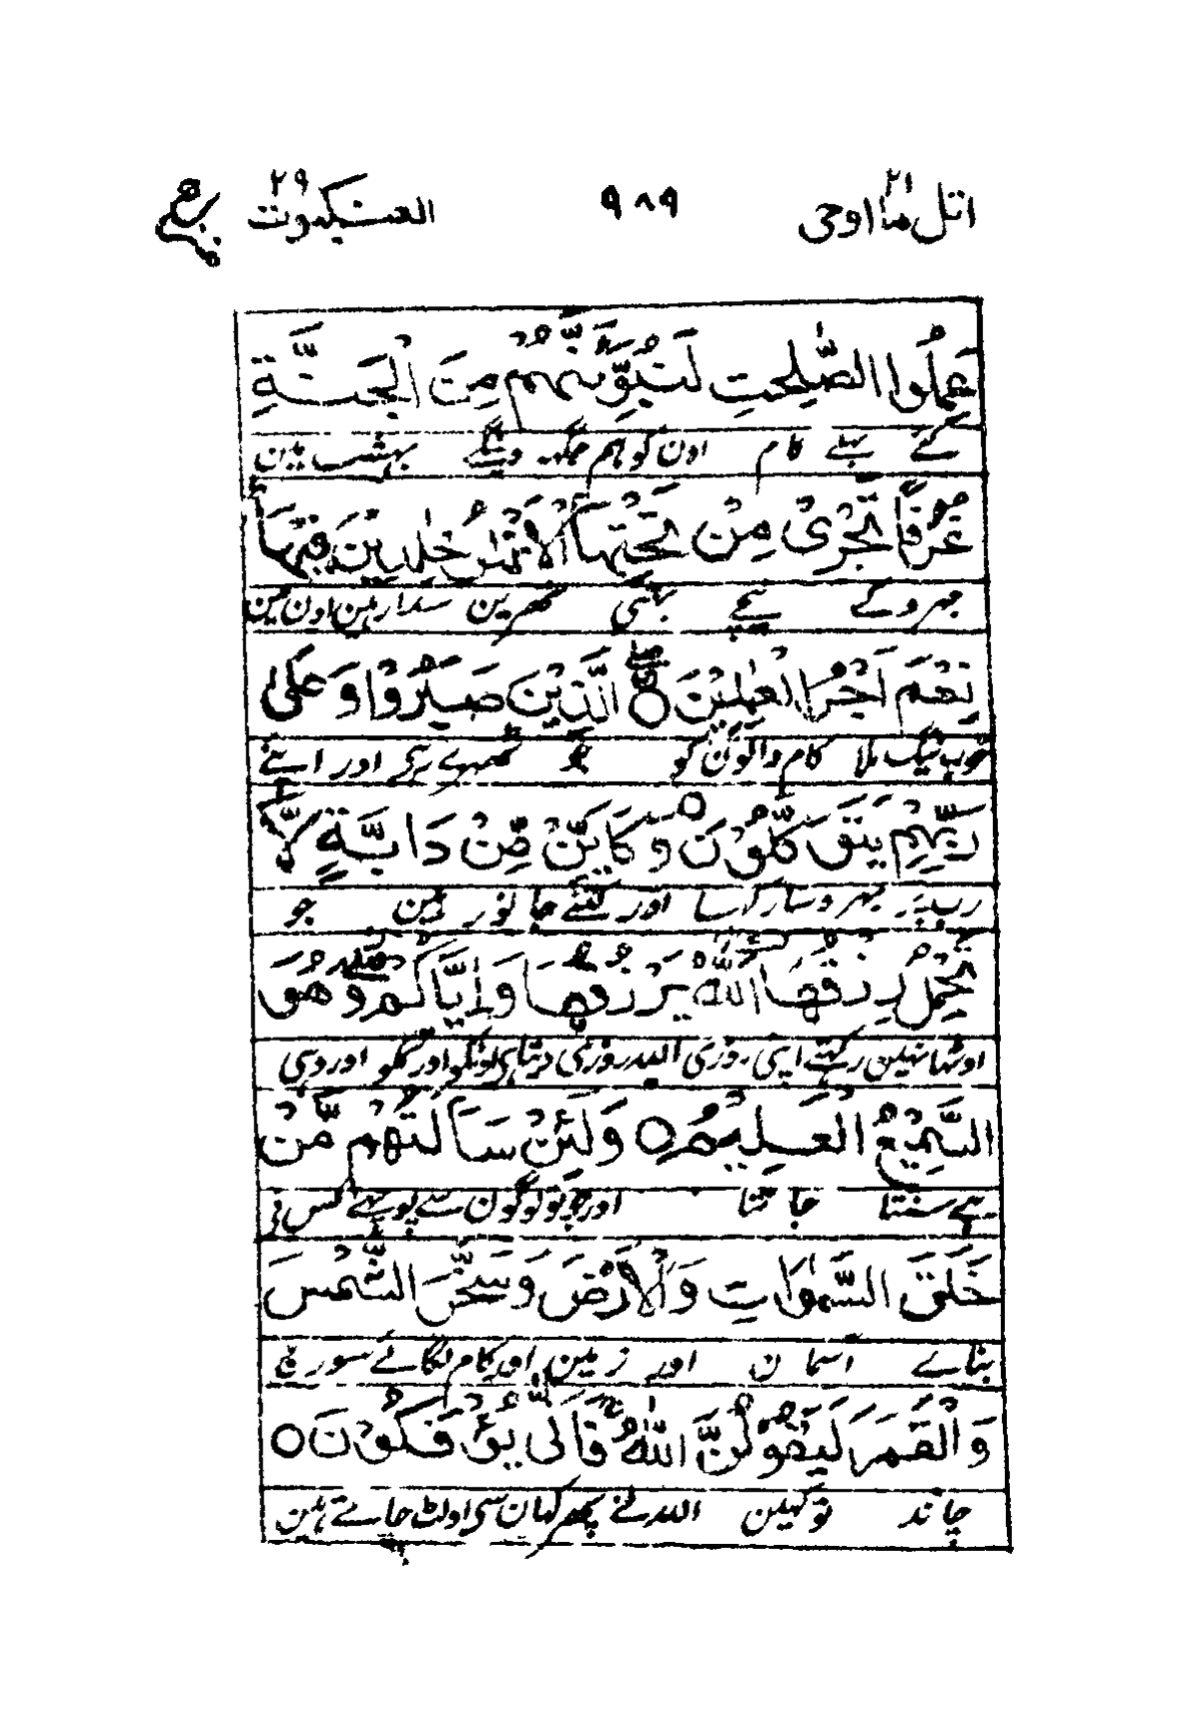 اتل ما اوحی ٢١ ٩٨٩ العنکبوت ٢٩
عَمِلُوا الصّٰلِحٰتِ لَنُبَوِّئَنَّهُمْ مِنَ الْجَنَّةِ
کئے بھلے کام اون کو ہم جگہہ دینگے بہشت مین
غُرَفًا تَجْرِیْ مِنْ تَحْتِهَا الْاَنْهٰرُ خٰلِدِیْنَ فِیْهَا
جہروکے نیچے بہتی نہرین سدا رہین اون مین
نِعْمَ اَجْرُ الْعٰمِلِیْنَ ۝ الَّذِیْنَ صَبَرُوْا وَ عَلٰی
خوب نیگ ملا کام والون کو جو ٹھہرے رہے اور اپنے
رَبِّهِمْ یَتَوَکَّلُوْنَ ۝ وَکَاَیِّنْ مِّنْ دَابَّةٍ لَّا
رب پر بہروسا رکہا اور کتنے جانور ہین جو
تَحْمِلُ رِزْقَهَا اللّٰهُ یَرْزُقُهَا وَاِیَّاکُمْ وَهُوَ
اوٹھا نہین رکہتے اپنی روزی اللہ روزی دیتا ہی اونکو اور تمکو اور وہی
السَّمِیْعُ الْعَلِیْمُ ۝ وَلَئِنْ سَاَلْتَهُمْ مَّنْ
ہے سنتا جانتا اور جو تو لوگون سے پوچہے کس نی
خَلَقَ السَّمٰوَاتِ وَالْاَرْضَ وَسَخَّرَ الشَّمْسَ
بنائے آسمان اور زمین اور کام لگائے سورج
وَالْقَمَرَ لَیَقُوْلُنَّ اللّٰهُ فَاَنّٰی یُؤْفَکُوْنَ ۝
چاند تو کہین اللہ نے پھر کہان سی اولٹ جاتے ہین